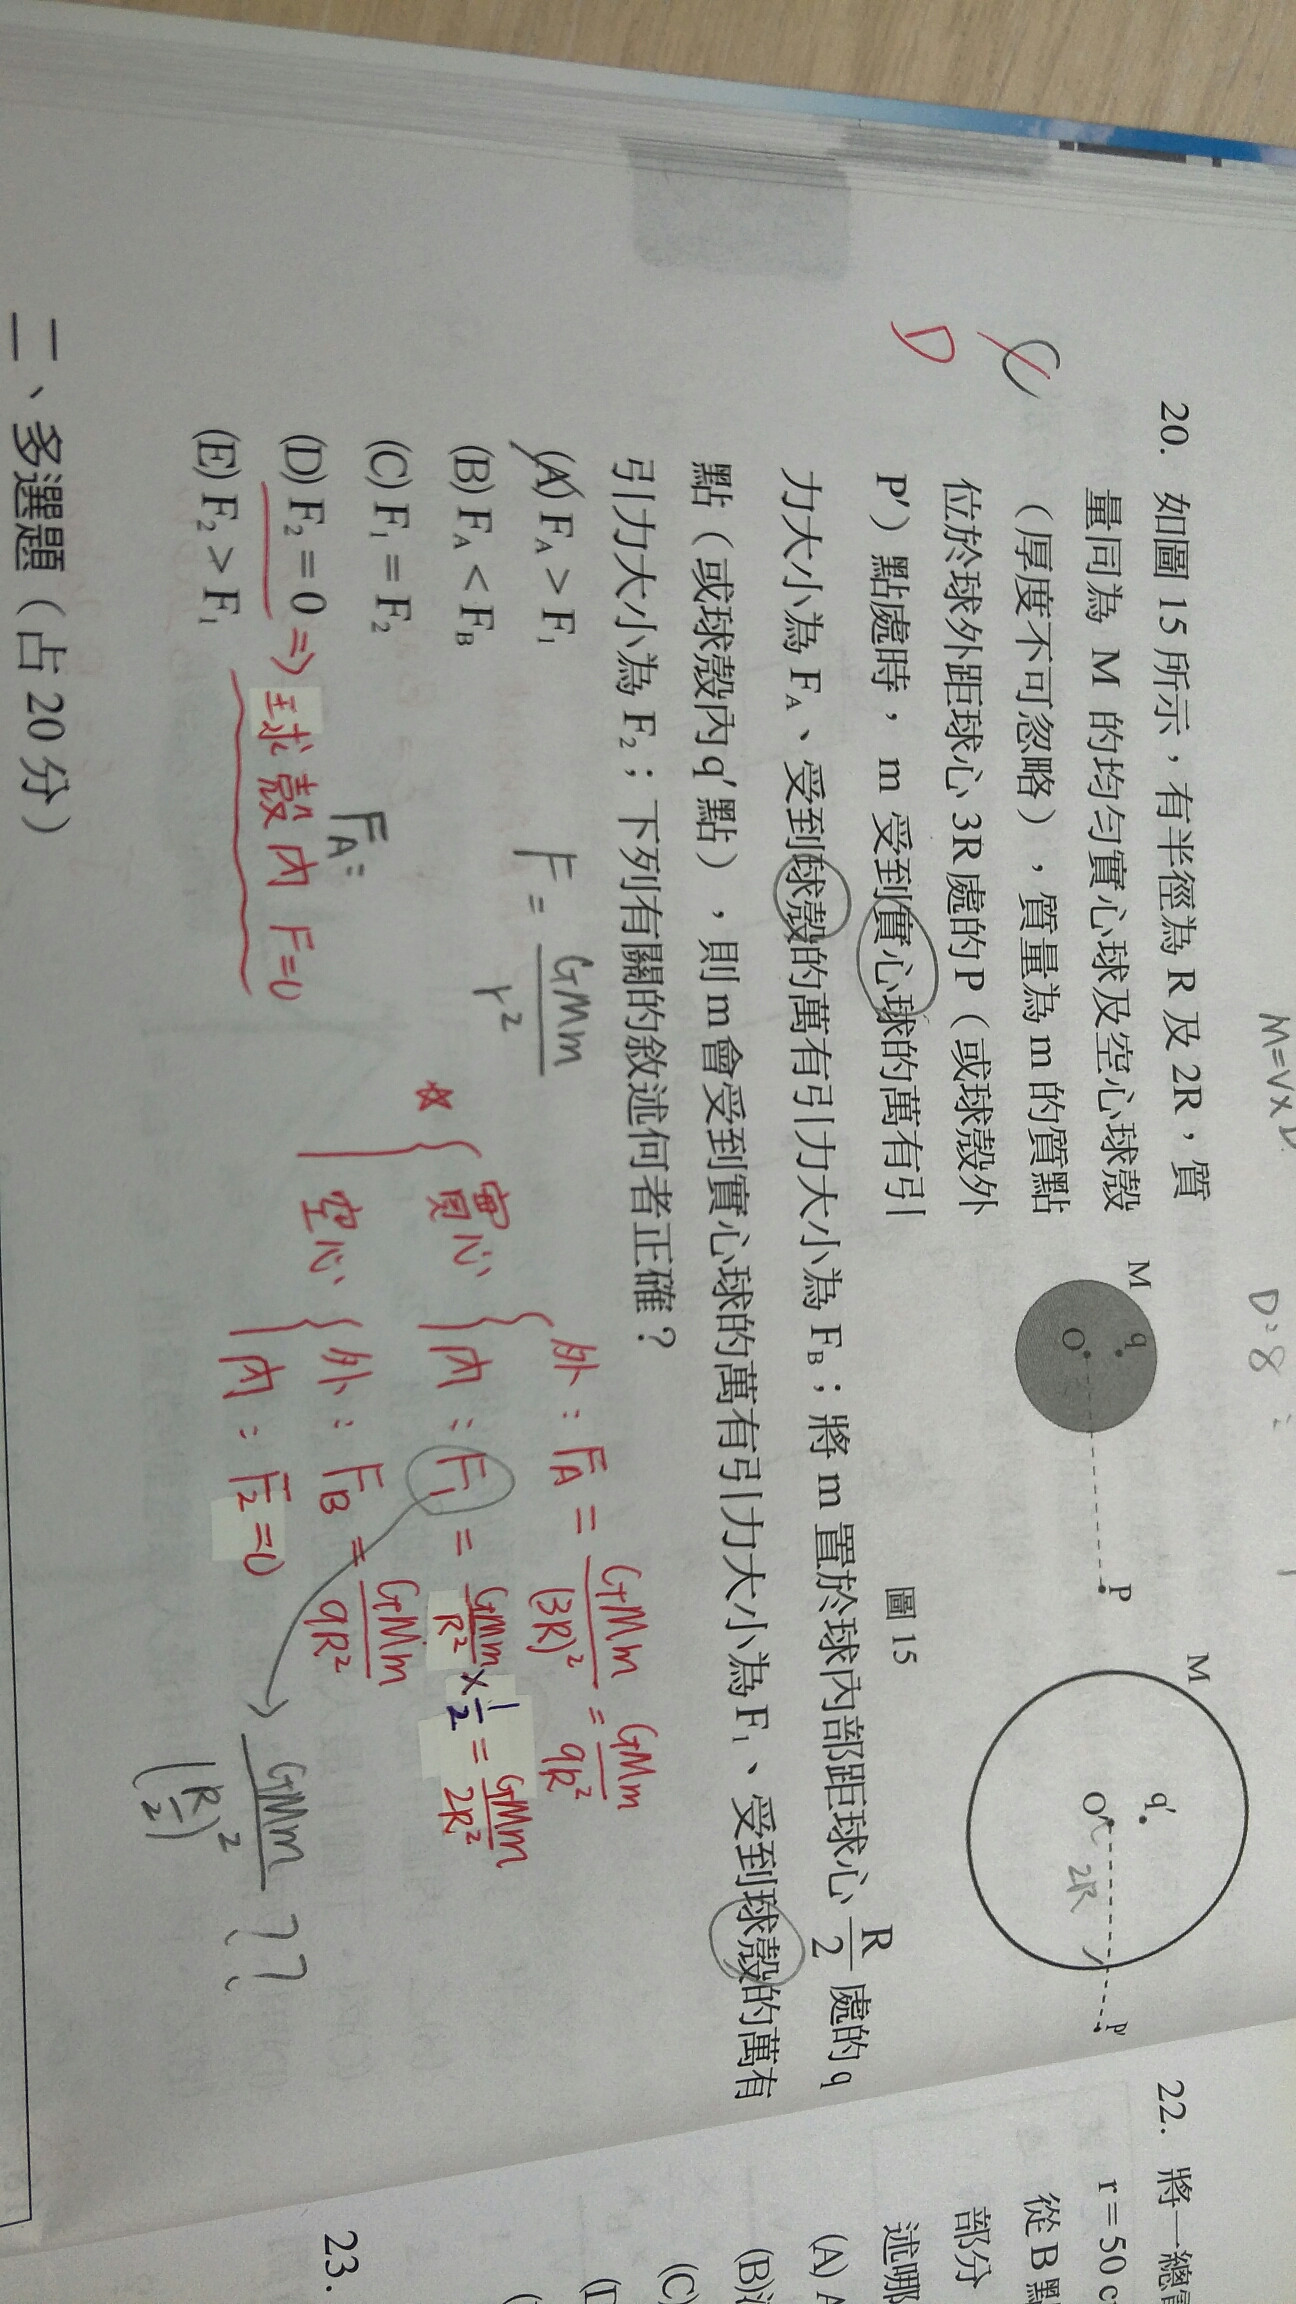 M=V×D
D=8
20. 如圖 15 所示，有半徑為 R 及 2R，質
量同為 M 的均勻實心球及空心球殼
（厚度不可忽略），質量為 m 的質點
位於球外距球心 3R 處的 P（或球殼外
P′）點處時，m 受到實心球的萬有引
力大小為 F_A、受到球殼的萬有引力大小為 F_B；將 m 置於球內部距球心 R/2 處的 q
點（或球殼內 q′ 點），則 m 會受到實心球的萬有引力大小為 F₁、受到球殼的萬有
引力大小為 F₂；下列有關的敘述何者正確？
(A) F_A > F₁
(B) F_A < F_B
(C) F₁ = F₂
(D) F₂ = 0 ⇒ 球殼內 F=0
(E) F₂ > F₁
M
q
O
P
M
q′
O
2R
P′
圖 15
C
D
F = GMm/r²
F_A:
☆
實心
外：F_A = GMm/(3R)² = GMm/9R²
內：F₁ = GMm/R² × 1/2 = GMm/2R²
空心
外：F_B = GMm/9R²
內：F₂=0
GMm/(R/2)² ??
二、多選題（占 20 分）
22. 將一總
r = 50 c
從 B 點
部分
述哪
(A) A
(B)
(C)
23.